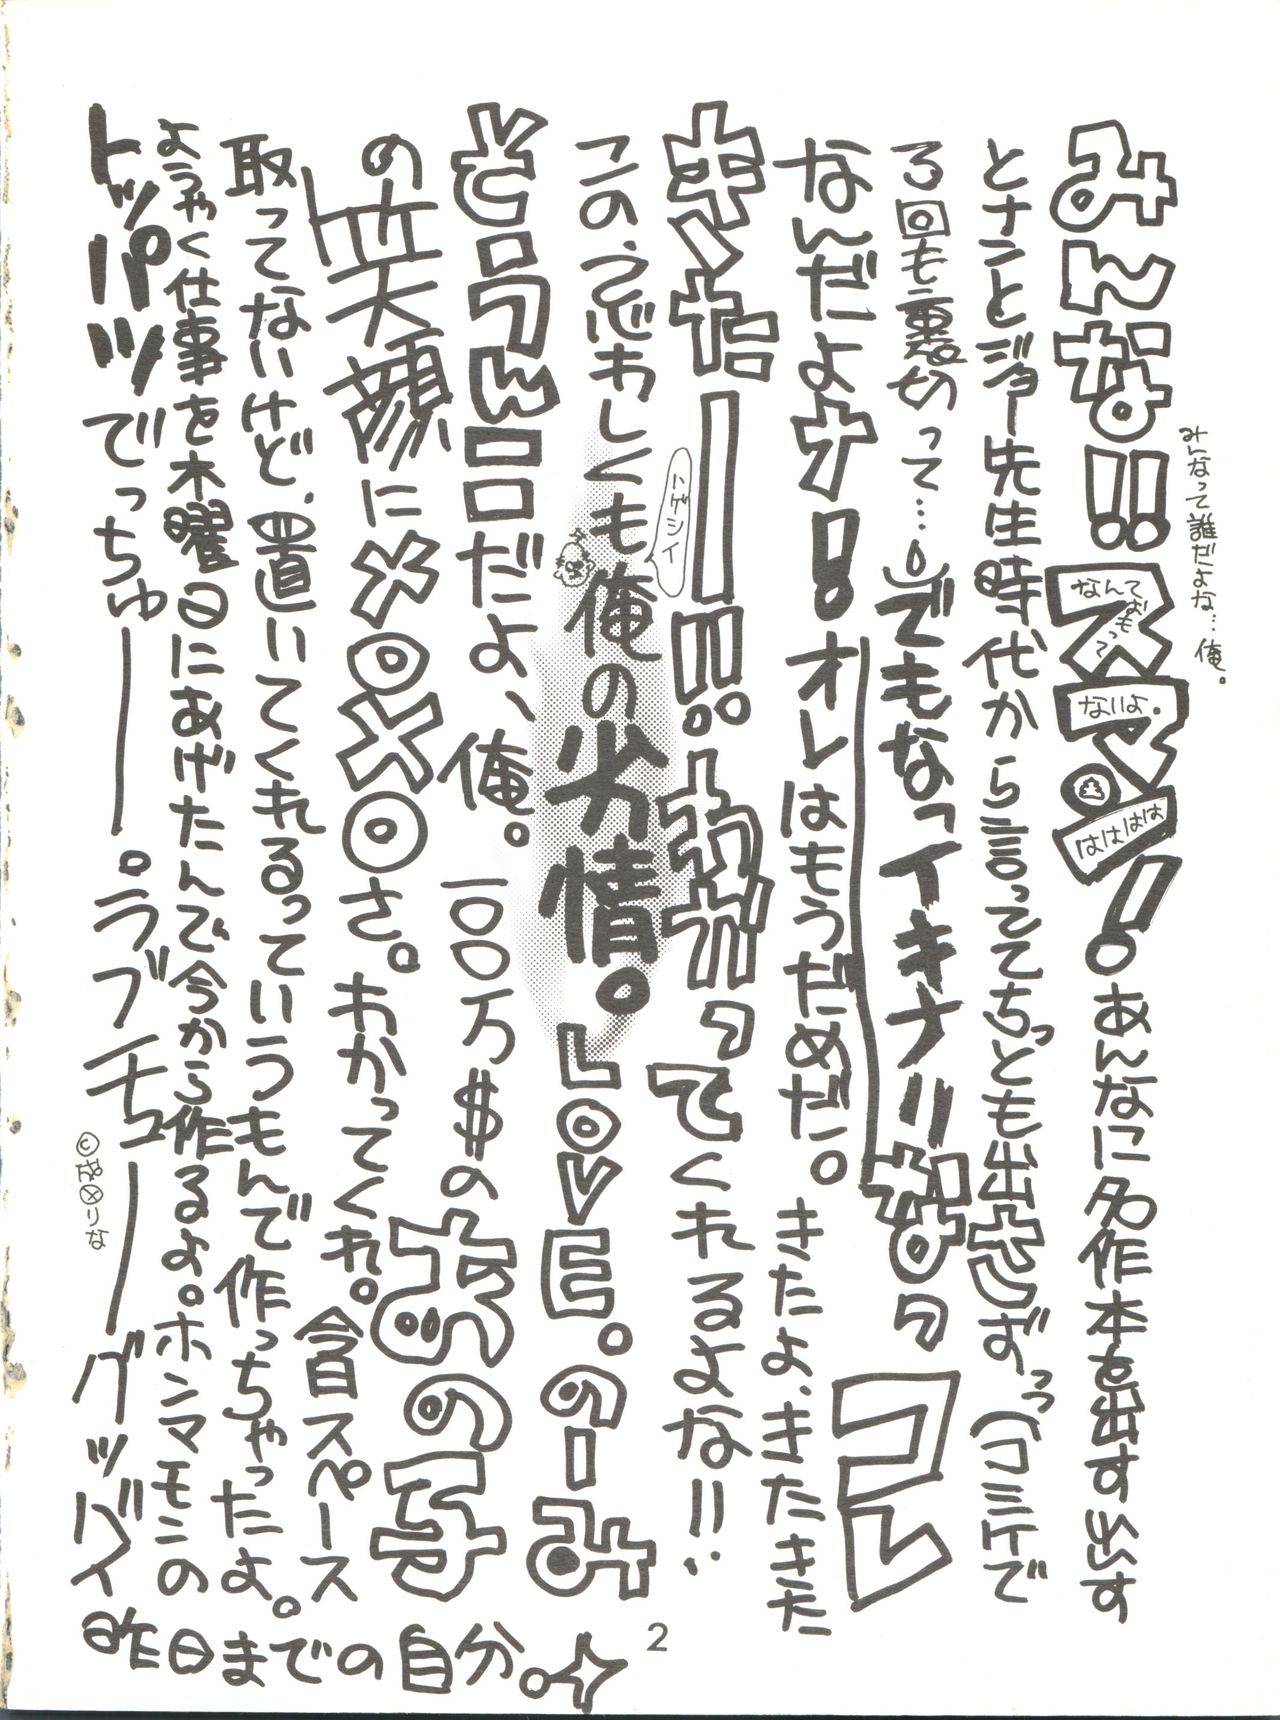 みんなって誰だよな…俺。
みんな!!スマン!あんなに名作本を出す出す
なんておもってないよ。
はははは
とナントとジョー先生時代から言っててちっとも出さずっつ(コミケで
3回も裏切って…。)でもなっイキナリなっコレ
なんだよナ!オレはもうだめだ。きたよ、きたきた
キたーー!!わかってくれるよな!!
ハゲシイ
この、うぶわしくも俺の劣情。LOVE.のーみ
そうんこだよ、俺。100万$のあの子
の笑顔に×○×○さ。わかってくれ。今日スペース
取ってないけど、置いてくれるっていうもんで作っちゃったよ。
ようやく仕事を木曜日にあげたんで今から作るよ。ホンマモンの
トッパツでっちゅーー。ラブチューーグッバイ
昨日までの自分。
りな
2